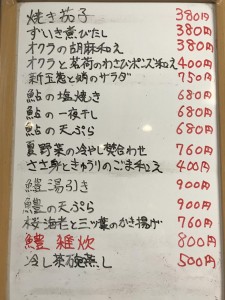 焼き茄子 380円
ずいき煮びたし 380円
オクラの胡麻和え 380円
オクラと茗荷のわさびポンズ和え 400円
新玉葱と蛸のサラダ 750円
鮎の塩焼き 680円
鮎の一夜干し 680円
鮎の天ぷら 680円
夏野菜の冷やし焚合わせ 760円
ささ身ときゅうりのごま和え 400円
鱧湯引き 900円
鱧の天ぷら 900円
桜海老と三ッ葉のかき揚げ 760円
鱧雑炊 800円
冷し茶碗蒸し 500円